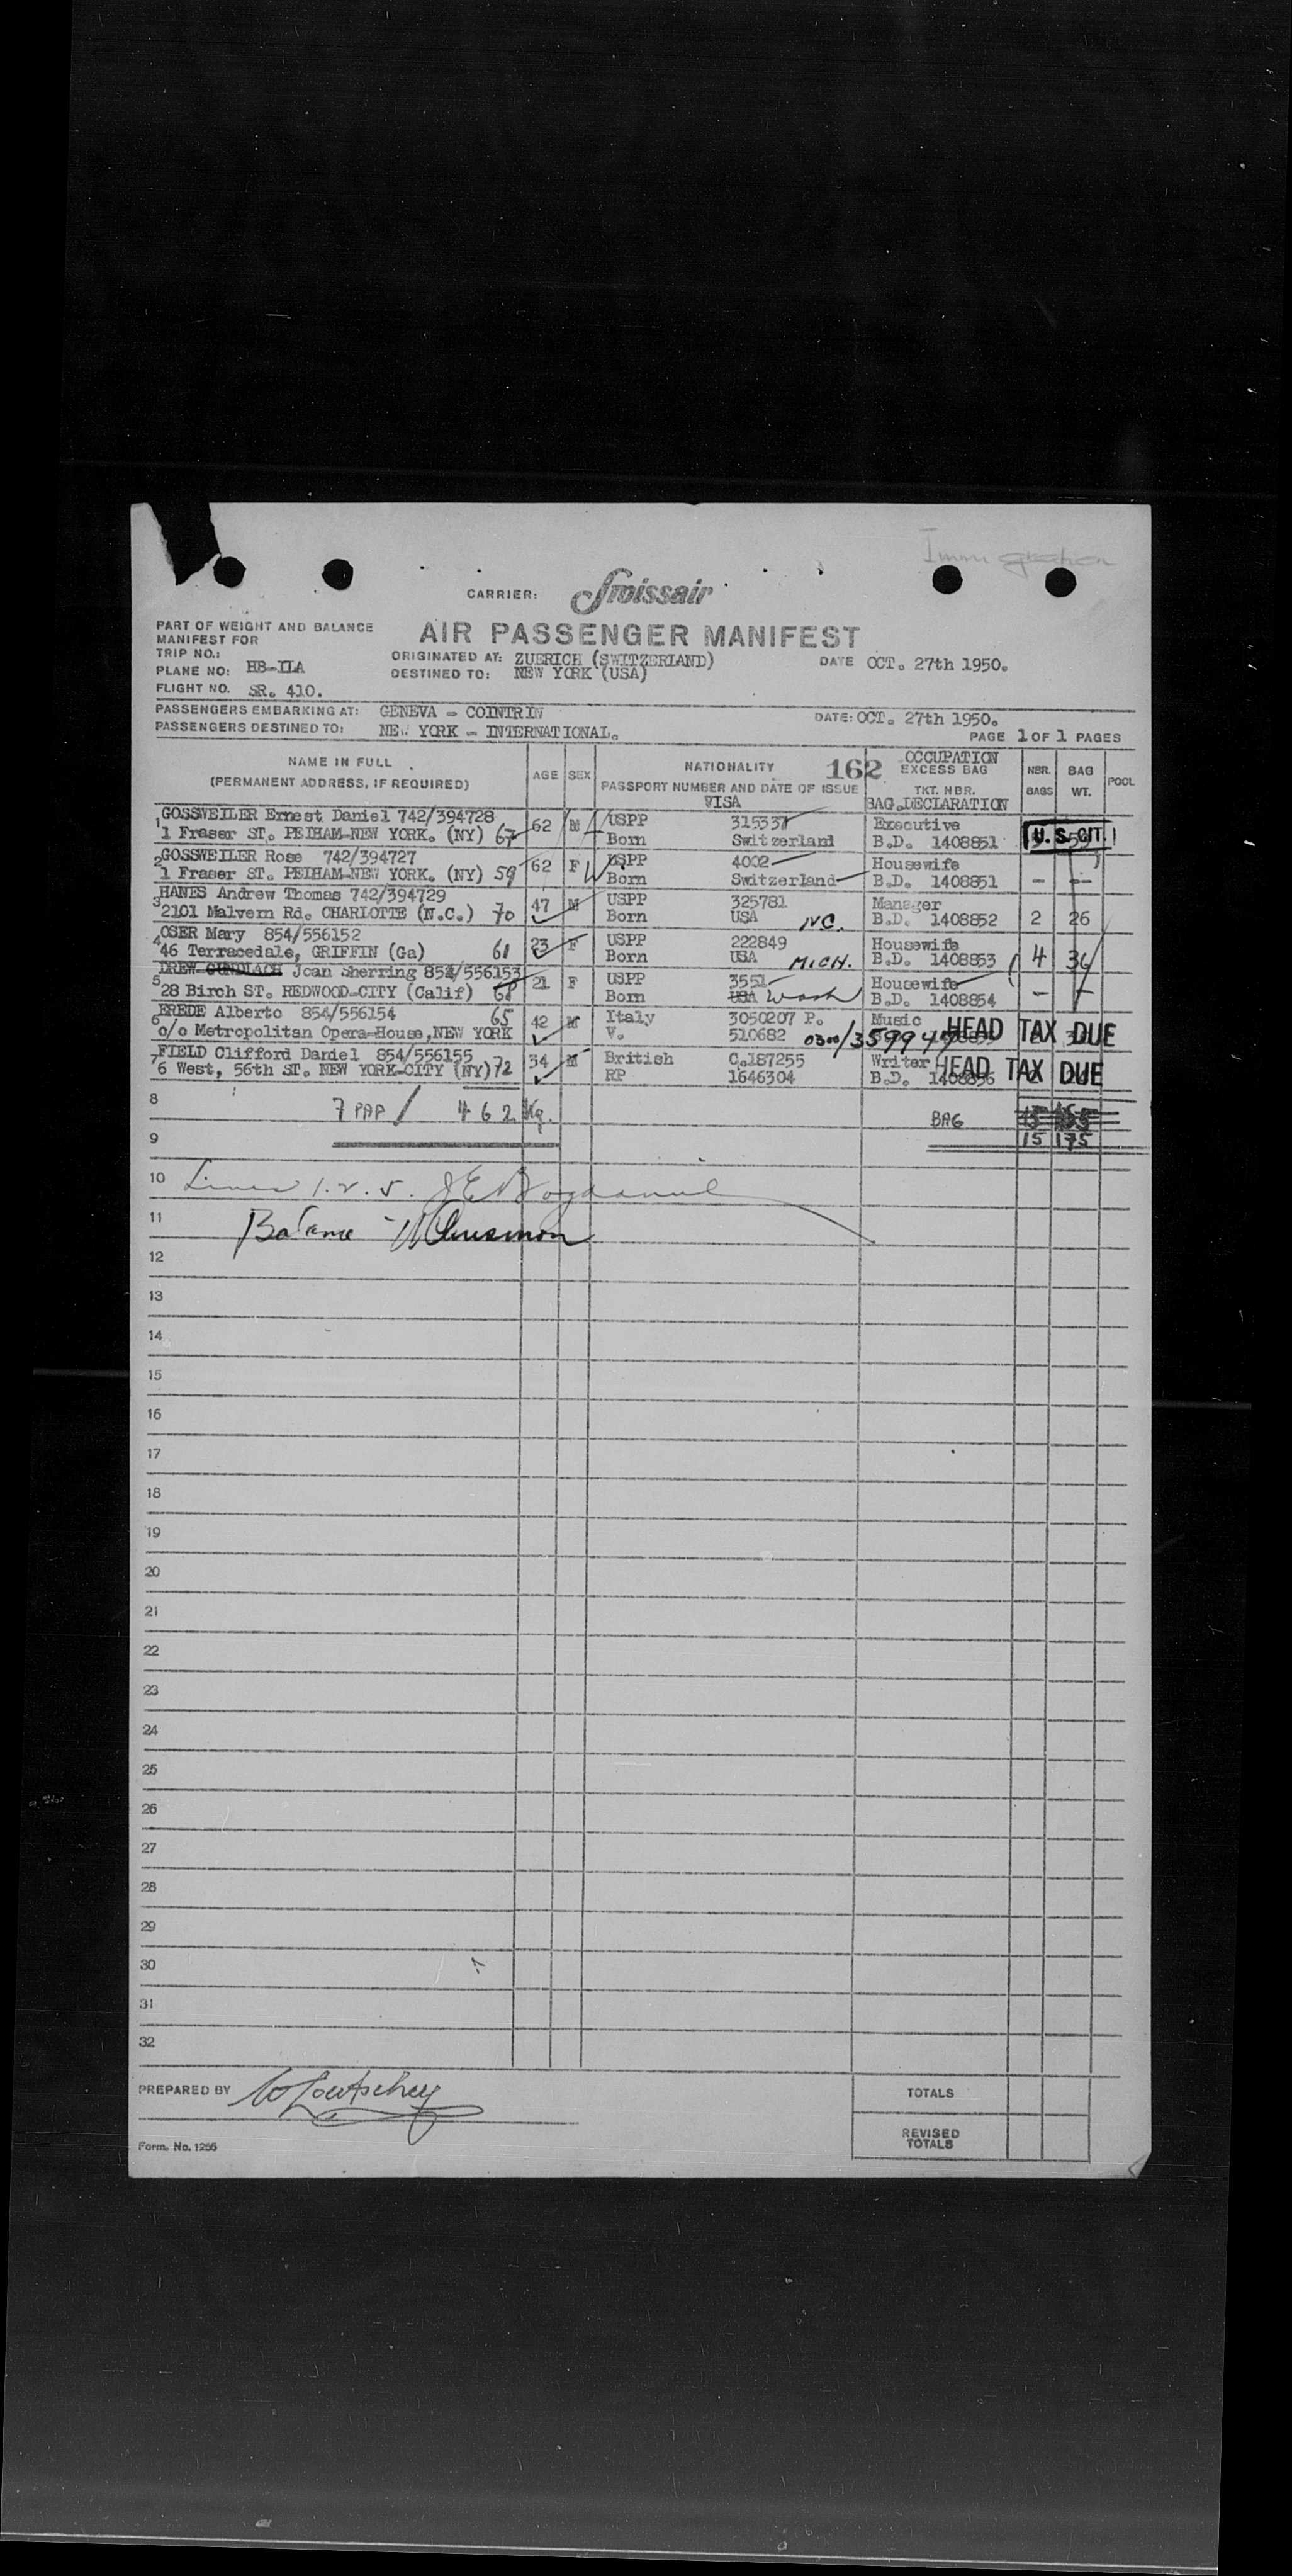 Immigration
CARRIER: Swissair
PART OF WEIGHT AND BALANCE
MANIFEST FOR
AIR PASSENGER MANIFEST
TRIP NO.:
ORIGINATED AT: ZUERICH (SWITZERLAND) DATE OCT. 27th 1950.
PLANE NO: HB-ILA
DESTINED TO: NEW YORK (USA)
FLIGHT NO. SR. 410.
PASSENGERS EMBARKING AT: GENEVA - COINTRIN DATE: OCT. 27th 1950.
PASSENGERS DESTINED TO: NEW YORK - INTERNATIONAL. PAGE 1 OF 1 PAGES
NAME IN FULL AGE SEX NATIONALITY 162 OCCUPATION NBR. BAG POOL
(PERMANENT ADDRESS, IF REQUIRED) PASSPORT NUMBER AND DATE OF ISSUE EXCESS BAG BAGS WT.
VISA TKT. NBR.
BAG.DECLARATION
1 GOSSWEILER Ernest Daniel 742/394728 62 M USPP 315337 Executive
1 Fraser ST. PELHAM-NEW YORK. (NY) 67 Born Switzerland B.D. 1408851 U.S. CIT.
2 GOSSWEILER Rose 742/394727 62 F W USPP 4002 Housewife
1 Fraser ST. PELHAM-NEW YORK. (NY) 59 Born Switzerland B.D. 1408851 - -
3 HANES Andrew Thomas 742/394729 47 M USPP 325781 Manager
2101 Malvern Rd. CHARLOTTE (N.C.) 70 Born USA N.C. B.D. 1408852 2 26
4 OSER Mary 854/556152 23 F USPP 222849 Housewife
46 Terracedale, GRIFFIN (Ga) 61 Born USA MICH. B.D. 1408853 4 36
5 DREW-GUNDLACH Joan Sherring 854/556153 21 F USPP 3551 Housewife
28 Birch ST. REDWOOD-CITY (Calif) 68 Born USA Wash B.D. 1408854 - -
6 EREDE Alberto 854/556154 65 42 M Italy 3050207 P. Music
c/o Metropolitan Opera-House,NEW YORK V. 510682 0300/35994 HEAD TAX DUE
7 FIELD Clifford Daniel 854/556155 34 M British C.187255 Writer
6 West, 56th ST. NEW YORK-CITY (NY) 72 RP 1646304 B.D. 1408856 HEAD TAX DUE
8 7 PAP / 462 Kg. BAG
9 15 175
10 Lines 1. 2. 5.
11 Balance
12
13
14
15
16
17
18
19
20
21
22
23
24
25
26
27
28
29
30
31
32
PREPARED BY
TOTALS
REVISED
TOTALS
Form. No. 1255